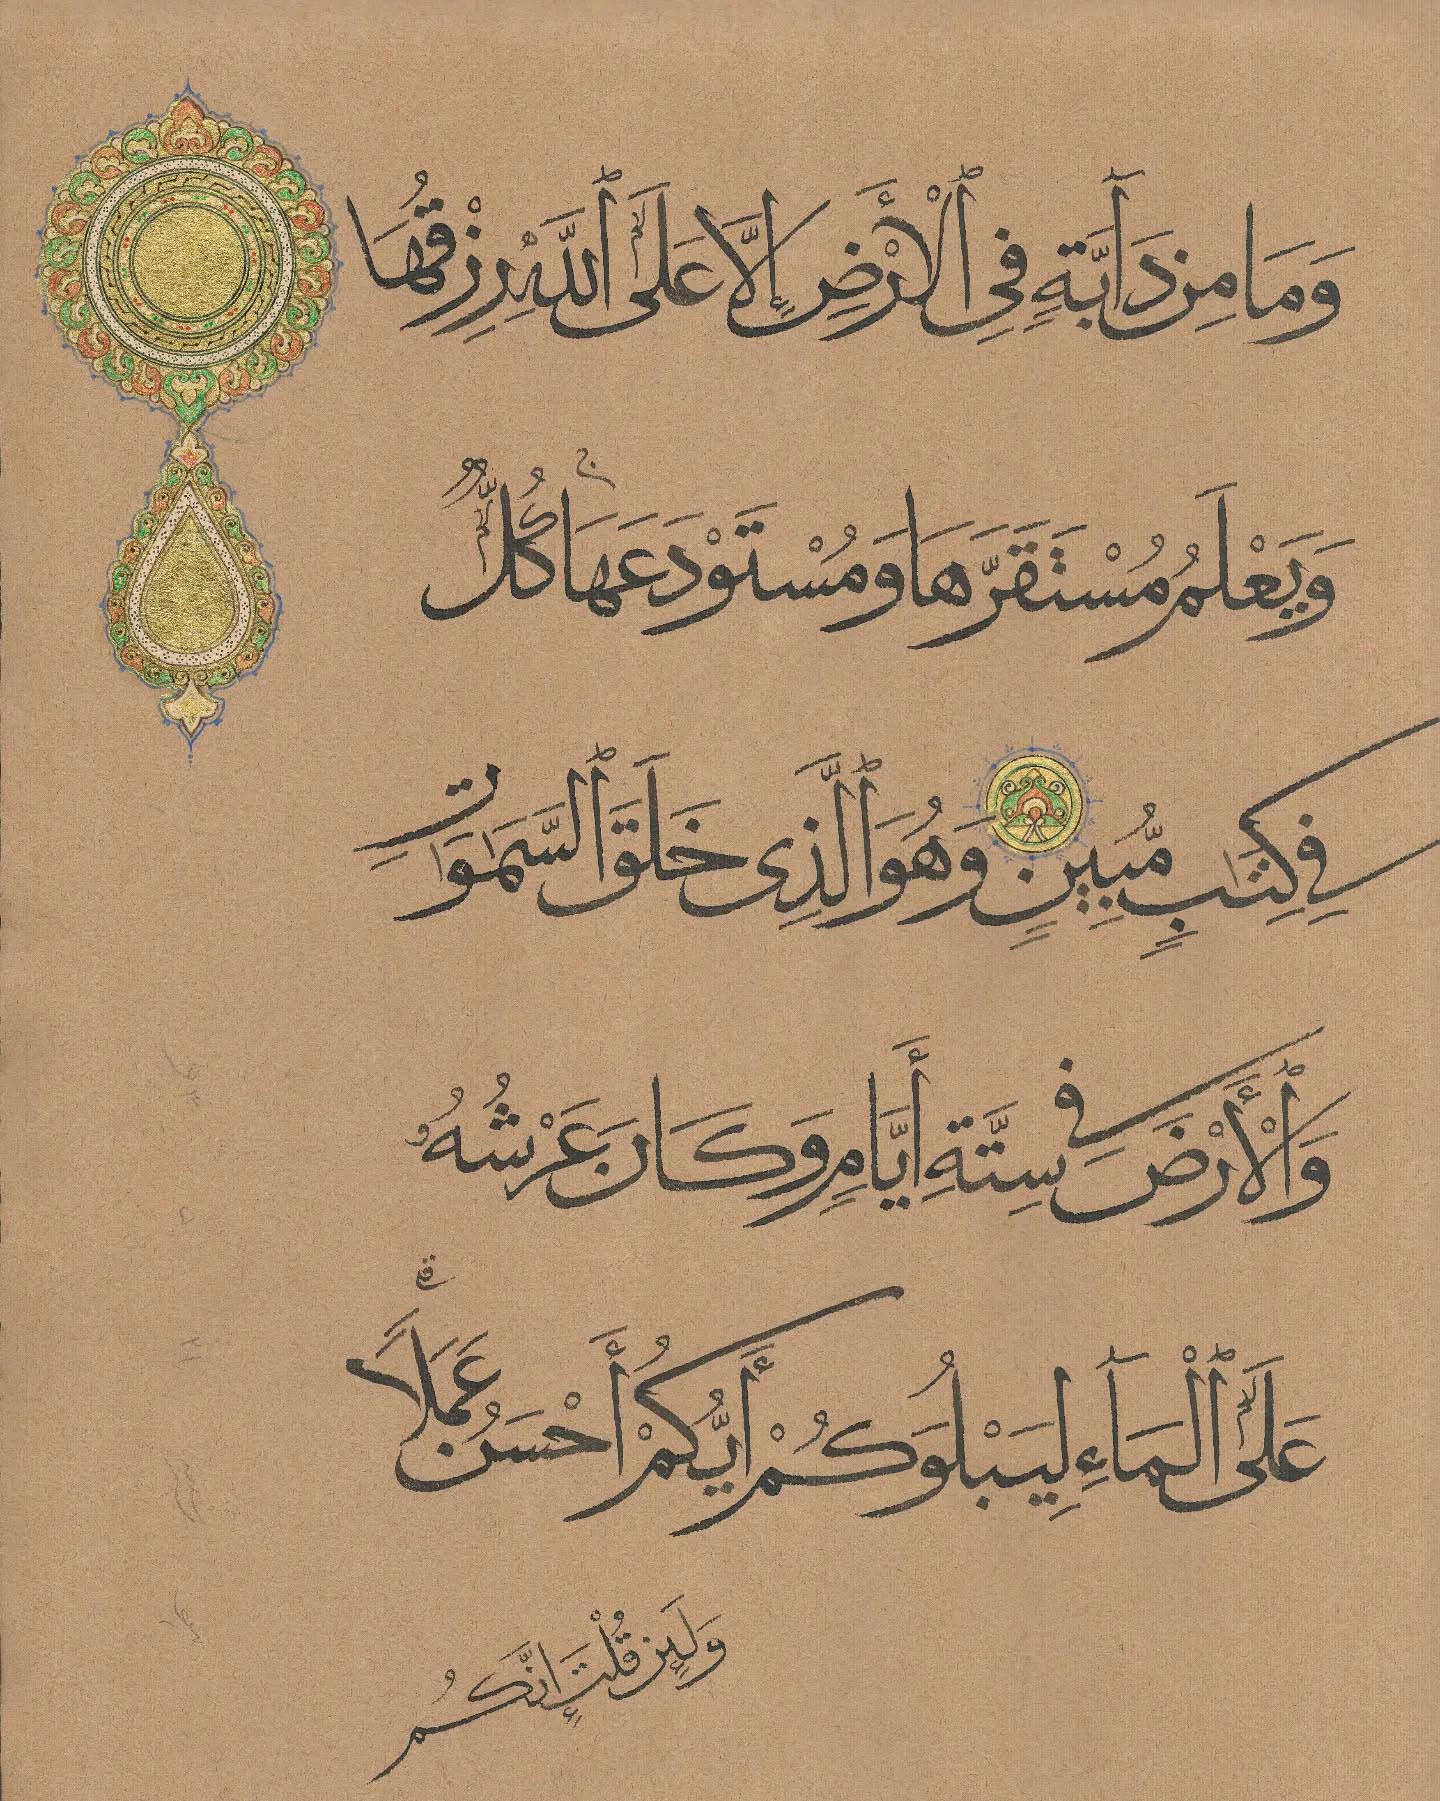 وَمَا مِن دَآبَّةٍ فِي ٱلْأَرْضِ إِلَّا عَلَى ٱللَّهِ رِزْقُهَا
وَيَعْلَمُ مُسْتَقَرَّهَا وَمُسْتَوْدَعَهَا ۚ كُلٌّ
فِي كِتَٰبٍ مُّبِينٍ وَهُوَ ٱلَّذِى خَلَقَ ٱلسَّمَٰوَٰتِ
وَٱلْأَرْضَ فِي سِتَّةِ أَيَّامٍ وَكَانَ عَرْشُهُۥ
عَلَى ٱلْمَآءِ لِيَبْلُوَكُمْ أَيُّكُمْ أَحْسَنُ عَمَلًا ۗ
وَلَئِن قُلْتَ إِنَّكُم